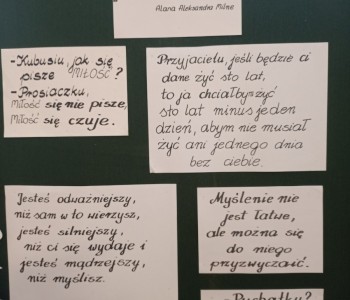 Alana Aleksandra Milne
-Kubusiu, jak się
pisze MIŁOŚĆ?
-Prosiaczku,
MIŁOŚĆ się nie pisze,
MIŁOŚĆ się czuje.
Przyjacielu, jeśli będzie ci
dane żyć sto lat,
to ja chciałbym żyć
sto lat minus jeden
dzień, abym nie musiał
żyć ani jednego dnia
bez ciebie.
Jesteś odważniejszy,
niż sam w to wierzysz,
jesteś silniejszy,
niż ci się wydaje i
jesteś mądrzejszy,
niż myślisz.
Myślenie nie
jest łatwe,
ale można się
do niego
przyzwyczaić.
-Puchatku?